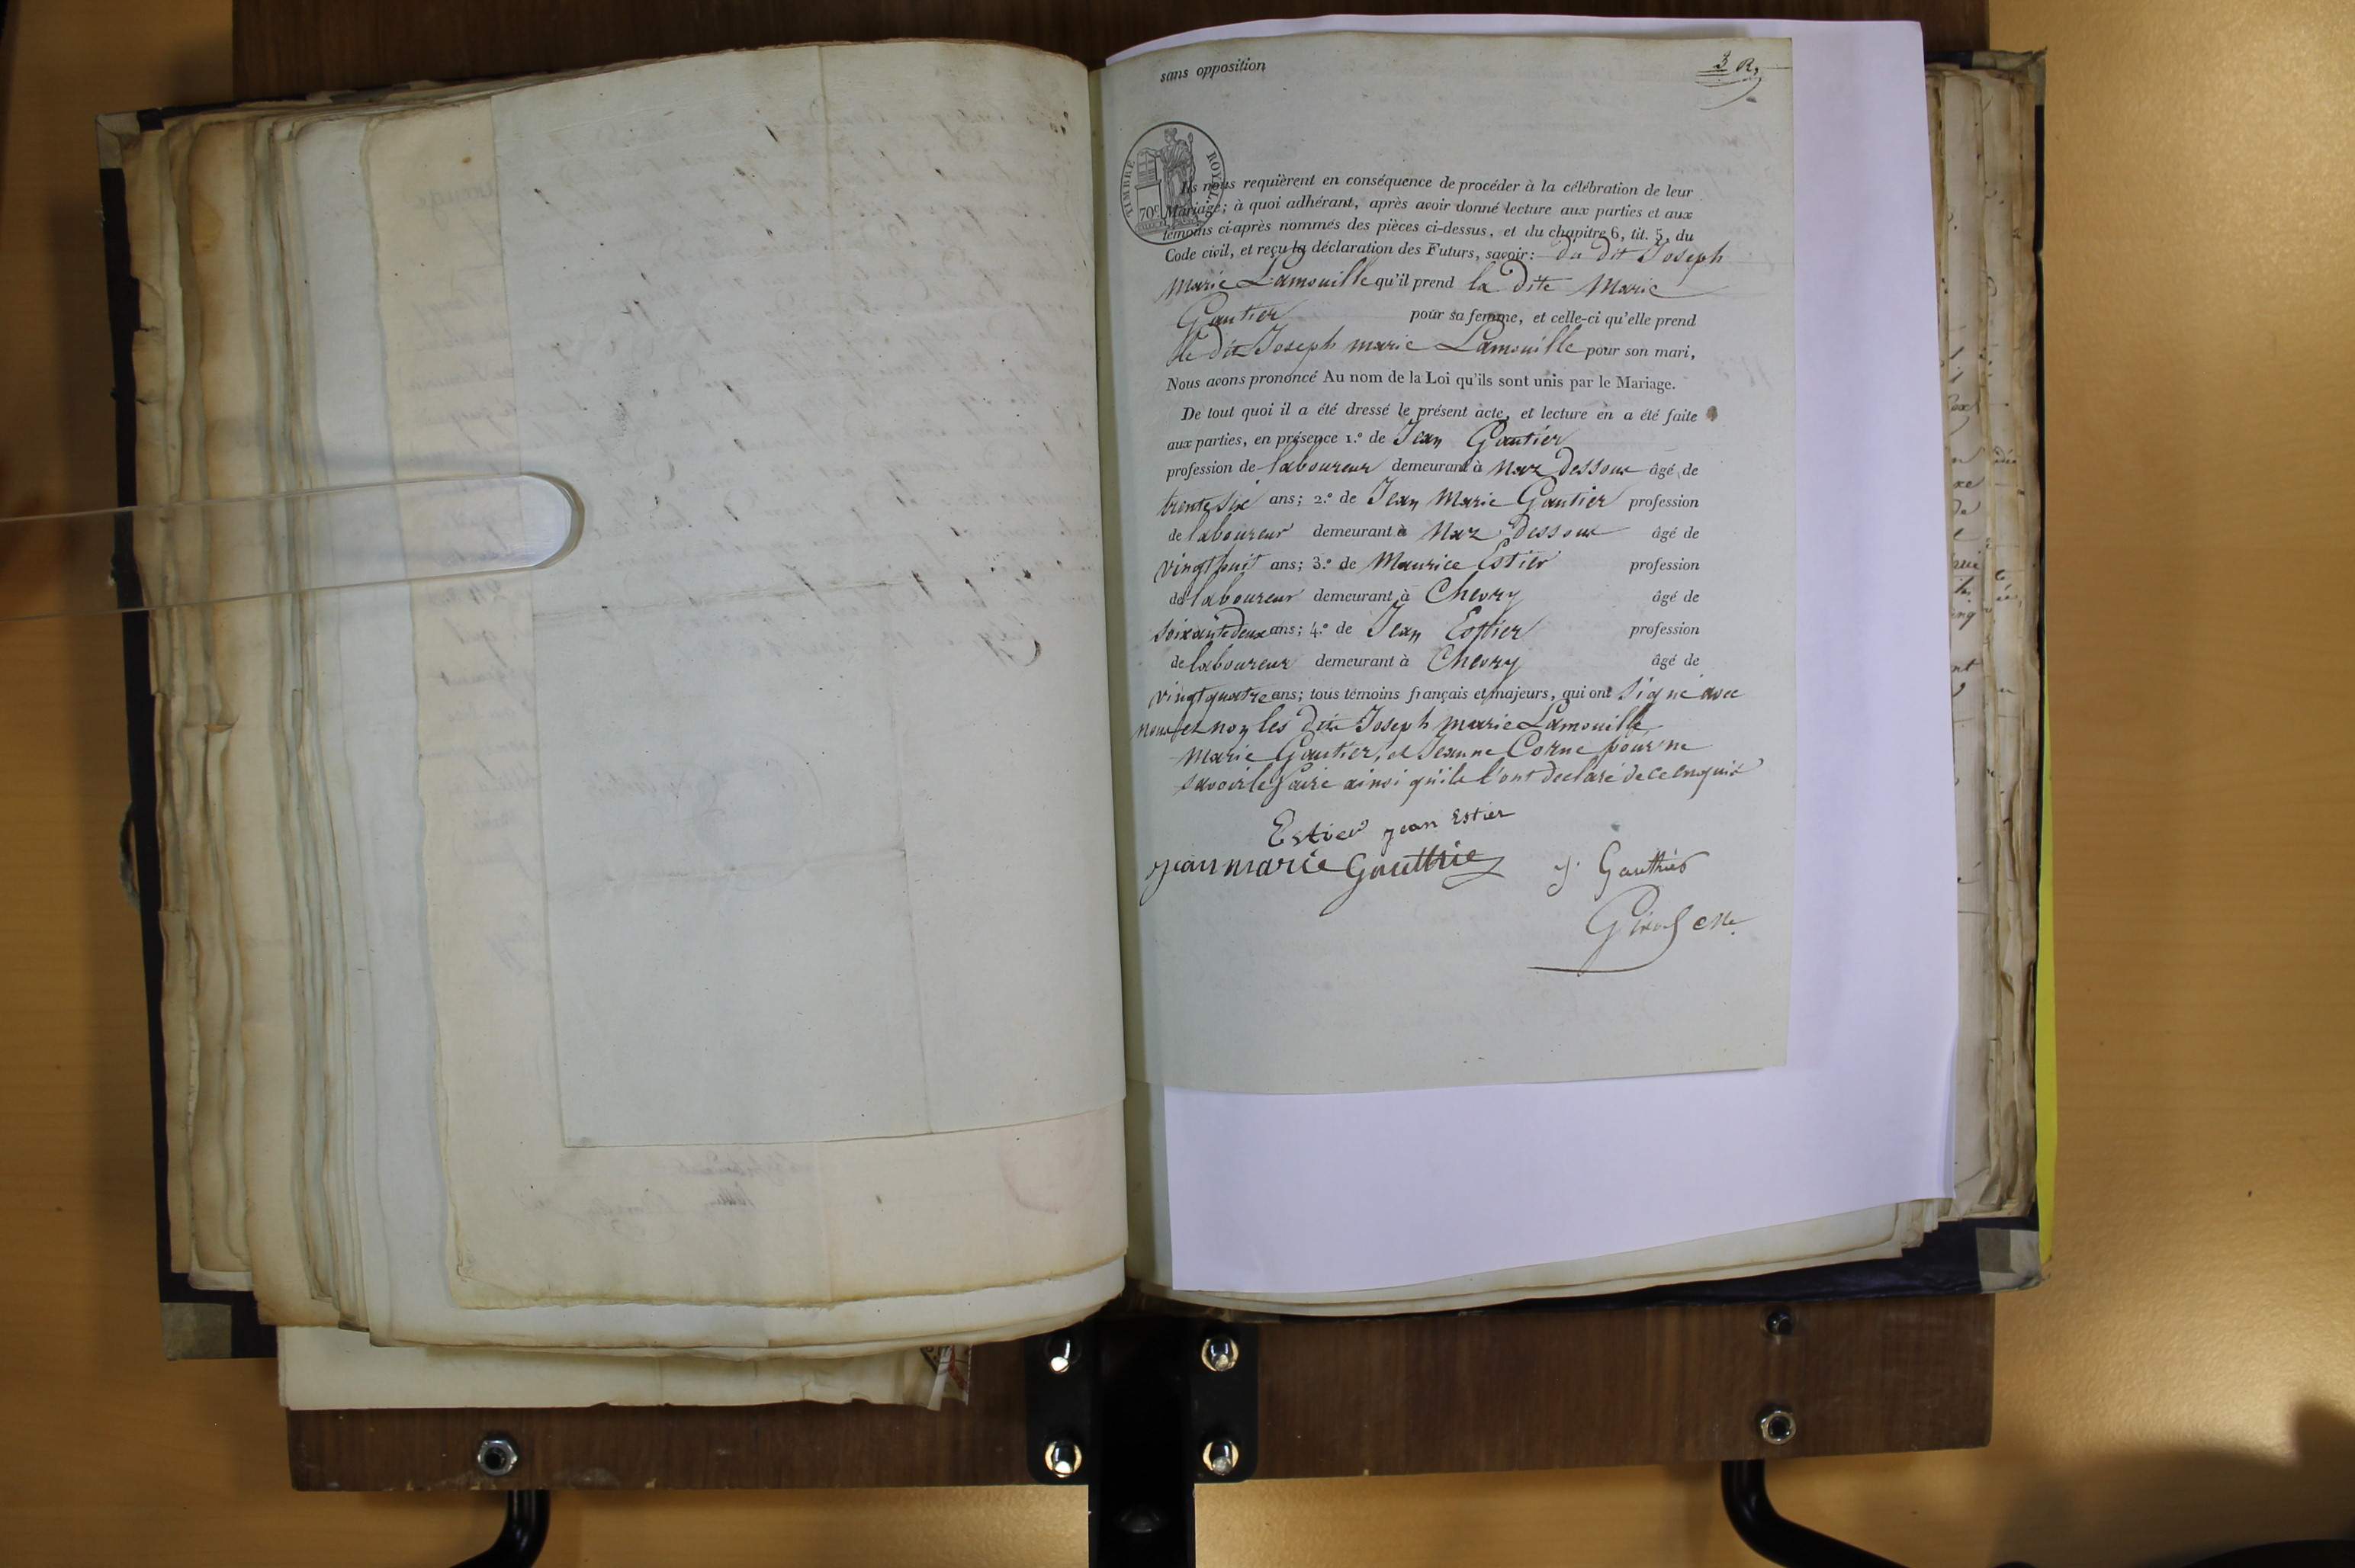 sans opposition
3 R.
TIMBRE ROYAL
70c
Ils nous requièrent en conséquence de procéder à la célébration de leur
Mariage; à quoi adhérant, après avoir donné lecture aux parties et aux
témoins ci-après nommés des pièces ci-dessus, et du chapitre 6, tit. 5, du
Code civil, et reçu la déclaration des Futurs, savoir: du dit Joseph
Marie Lamouille qu'il prend la dite Marie
Gautier pour sa femme, et celle-ci qu'elle prend
le dit Joseph marie Lamouille pour son mari,
Nous avons prononcé Au nom de la Loi qu'ils sont unis par le Mariage.
De tout quoi il a été dressé le présent acte, et lecture en a été faite
aux parties, en présence 1.º de Jean Gautier
profession de laboureur demeurant à Naz Dessous âgé de
trente six ans; 2.º de Jean Marie Gautier profession
de laboureur demeurant à Naz Dessous âgé de
vingt huit ans; 3.º de Maurice Estier profession
de laboureur demeurant à Chevry âgé de
soixante deux ans; 4.º de Jean Estier profession
de laboureur demeurant à Chevry âgé de
vingt quatre ans; tous témoins français et majeurs, qui ont signé avec
nous et non les dits Joseph marie Lamouille
Marie Gautier, et Jeanne Corne pour ne
savoir le faire ainsi qu'ils l'ont declaré de ce enquis
Estier jean Estier
jean marie Gauthie
j. Gauthier